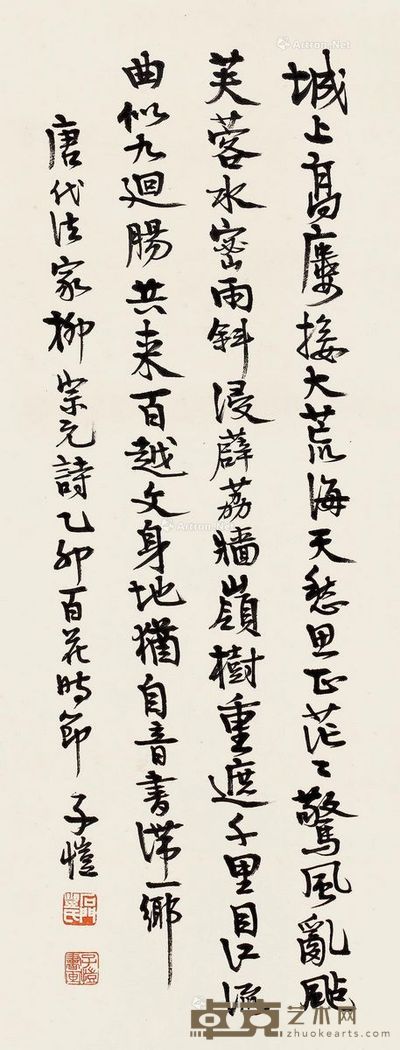 城上高楼接大荒海天愁思正茫〻驚風亂飐
芙蓉水密雨斜侵薜荔墙嶺樹重遮千里目江流
曲似九迴腸共来百越文身地猶自音書滞一鄉
唐代法家柳宗元詩乙卯百花時節 子愷
石門豐氏
子愷書畫
Artron.Net
卓克艺术网
zhuokearts.com